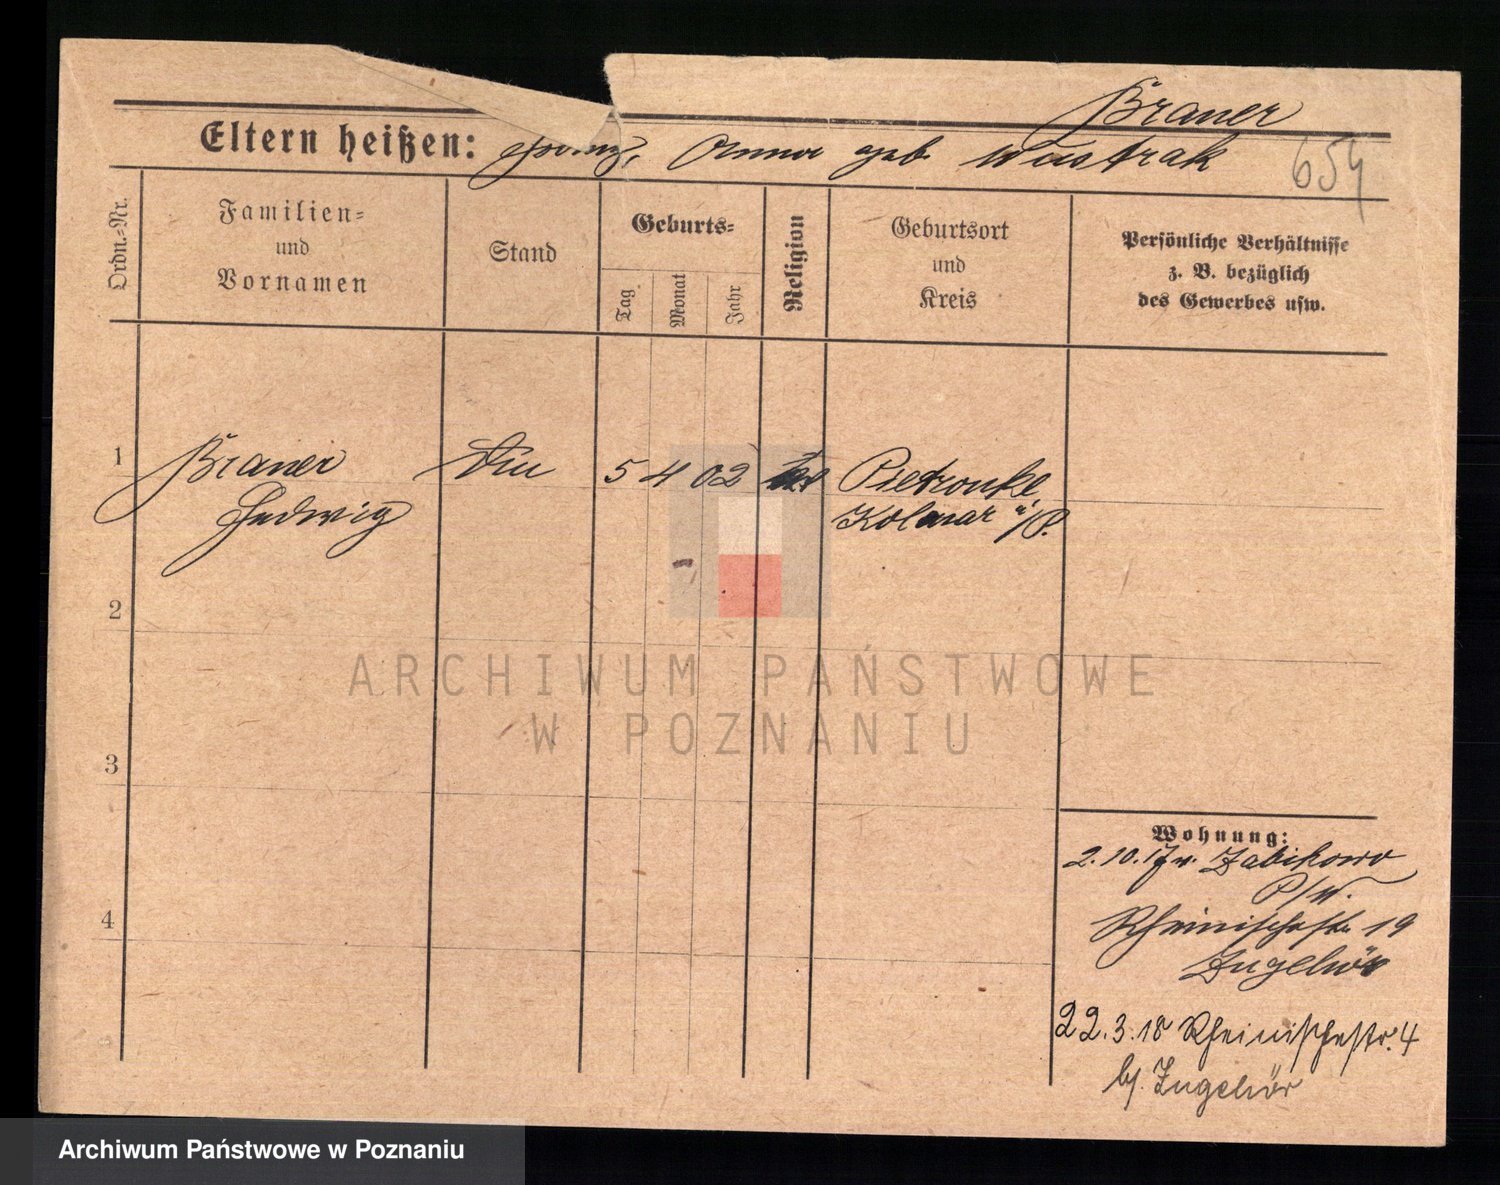 Braner
Eltern heißen: Franz, Anna geb. Wastrak
654
Ordn.-Nr.
Familien-
und
Vornamen
Stand
Geburts-
Tag
Monat
Jahr
Religion
Geburtsort
und
Kreis
Persönliche Verhältnisse
z. B. bezüglich
des Gewerbes usw.
1 Braner Din 5 4 02 Pietronke,
Hedwig Kolmar i/P.
2
3
4
Wohnung:
2.10.17 v. Zabikowo
P/W.
Rheinischestr. 19
Zugehör
22.3.18 Rheinischestr. 4
b/. Zugehör
ARCHIWUM PAŃSTWOWE
W POZNANIU
Archiwum Państwowe w Poznaniu